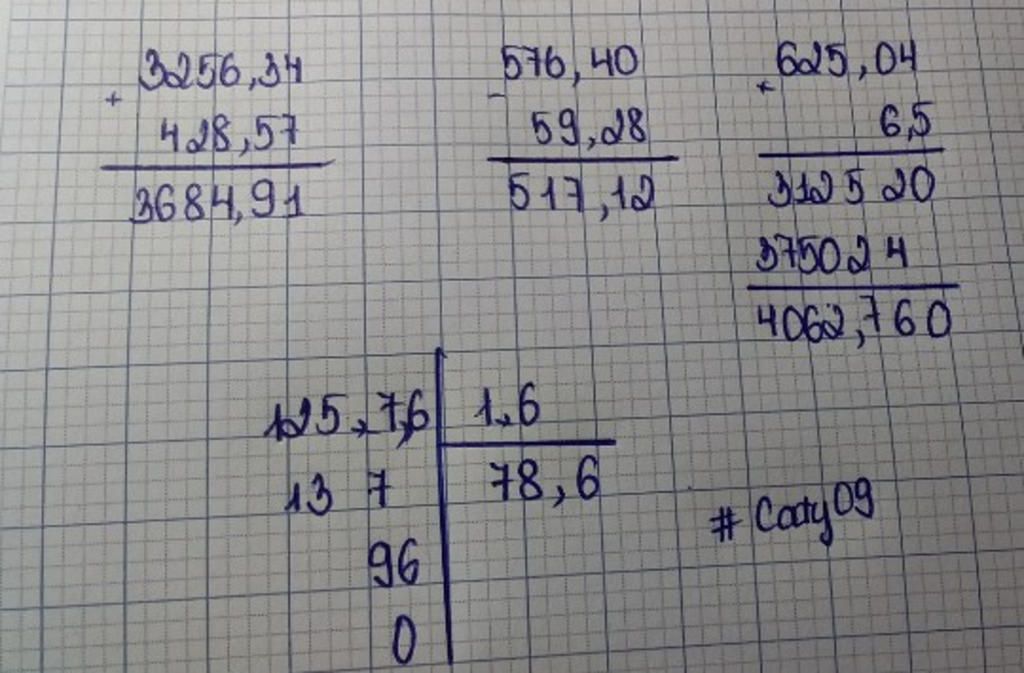 + 3256,34
428,57
3684,91
- 576,40
59,28
517,12
× 625,04
6,5
312520
375024
4062,760
125,7,6 | 1,6
137 | 78,6
96
0
# Caty09